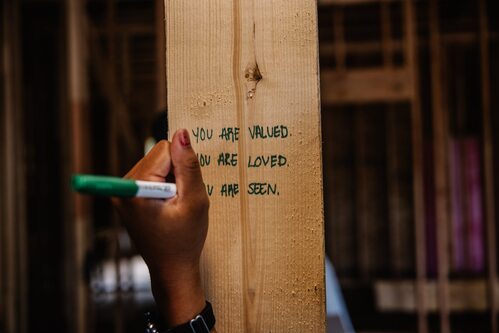 YOU ARE VALUED.
YOU ARE LOVED.
YOU ARE SEEN.